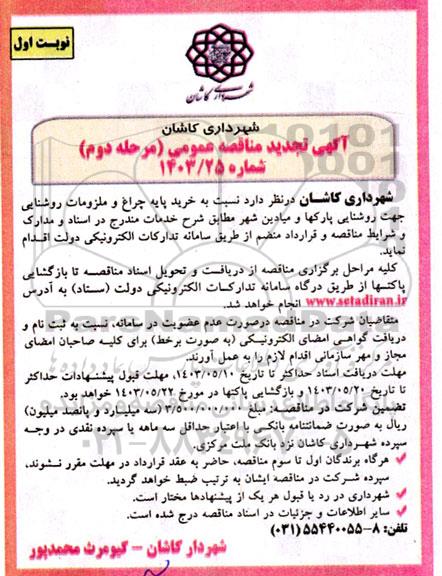 نوبت اول
شهرداری کاشان
شهرداری کاشان
آگهی تجدید مناقصه عمومی (مرحله دوم)
شماره ۱۴۰۳/۲۵
شهرداری کاشان درنظر دارد نسبت به خرید پایه چراغ و ملزومات روشنایی
جهت روشنایی پارکها و میادین شهر مطابق شرح خدمات مندرج در اسناد و مدارک
و شرایط مناقصه و قرارداد منضم از طریق سامانه تدارکات الکترونیکی دولت اقدام
نماید.
کلیه مراحل برگزاری مناقصه از دریافت و تحویل اسناد مناقصه تا بازگشایی
پاکتها از طریق درگاه سامانه تدارکات الکترونیکی دولت (ستاد) به آدرس
www.setadiran.ir انجام خواهد شد.
متقاضیان شرکت در مناقصه درصورت عدم عضویت در سامانه، نسبت به ثبت نام و
دریافت گواهی امضای الکترونیکی (به صورت برخط) برای کلیه صاحبان امضای
مجاز و مهر سازمانی اقدام لازم را به عمل آورند.
مهلت دریافت اسناد حداکثر تا تاریخ ۱۴۰۳/۰۵/۱۰، مهلت قبول پیشنهادات حداکثر
تا تاریخ ۱۴۰۳/۰۵/۲۰ و بازگشایی پاکتها در مورخ ۱۴۰۳/۰۵/۲۲ خواهد بود.
تضمین شرکت در مناقصه: مبلغ ۳/۵۰۰/۰۰۰/۰۰۰ (سه میلیارد و پانصد میلیون)
ریال به صورت ضمانتنامه بانکی با اعتبار حداقل سه ماهه یا سپرده نقدی در وجه
سپرده شهرداری کاشان نزد بانک ملت مرکزی.
هرگاه برندگان اول تا سوم مناقصه، حاضر به عقد قرارداد در مهلت مقرر نشوند،
سپرده شرکت در مناقصه ایشان به ترتیب ضبط خواهد گردید.
شهرداری در رد یا قبول هر یک از پیشنهادها مختار است.
سایر اطلاعات و جزئیات در اسناد مناقصه درج شده است.
تلفن: ۸-۵۵۴۴۰۰۵۵ (۰۳۱)
شهردار کاشان - کیومرث محمدپور